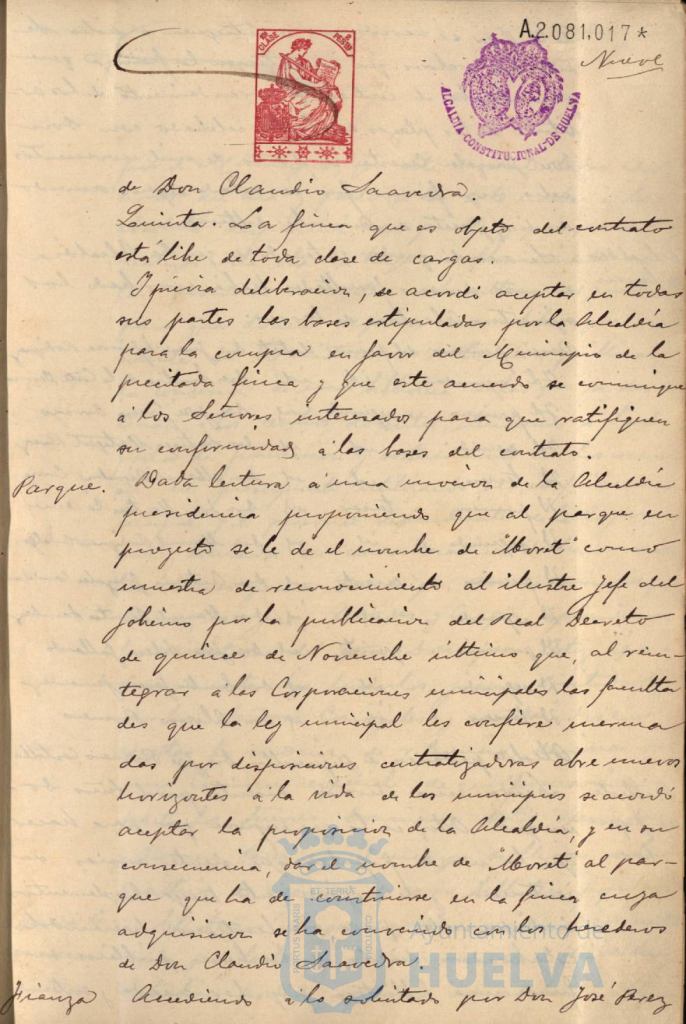 CLASE
PESETA
A.2.081,017*
Nueve
ALCALDIA CONSTITUCIONAL DE HUELVA
de Don Claudio Saavedra.
Quinta. La finca que es objeto del contrato
está libre de toda clase de cargas.
Y prévia deliberacion, se acordó aceptar en todas
sus partes las bases estipuladas por la Alcaldía
para la compra en favor del Municipio de la
precitada finca y que este acuerdo se comunique
á los Señores interesados para que ratifiquen
su conformidad á las bases del contrato.
Parque. Dada lectura á una mocion de la Alcaldía
presidencia proponiendo que al parque en
proyecto se le de el nombre de "Moret" como
muestra de reconocimiento al ilustre Jefe del
Gobierno por la publicacion del Real Decreto
de quince de Noviembre último que, al rein-
tegrar á las Corporaciones municipales las faculta
des que la ley municipal les confiere merma
das por disposiciones centralizadoras abre nuevos
horizontes á la vida de los municipios se acordó
aceptar la proposicion de la Alcaldía, y en su
consecuencia, dar el nombre de "Moret" al par-
que que ha de construirse en la finca cuya
adquisicion se ha convenido con los herederos
de Don Claudio Saavedra.
Fianza Accediendo á lo solicitado por Don José Perez
Ayuntamiento de
HUELVA